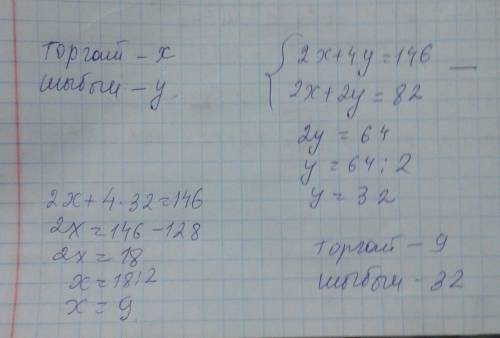 Торгай – x
Шыбын – y
2x+4y=146
2x+2y=82
2y=64
y=64:2
y=32
2x+4·32=146
2x=146-128
2x=18
x=18:2
x=9
Торгай – 9
Шыбын - 32